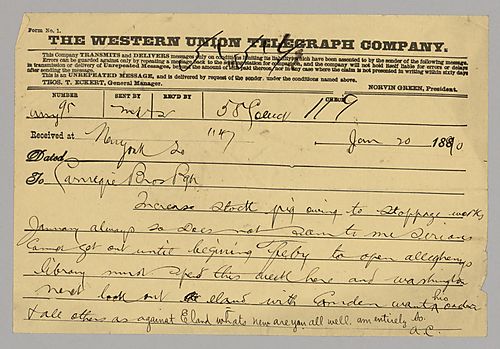 Form No. 1.
THE WESTERN UNION TELEGRAPH COMPANY.
This Company TRANSMITS and DELIVERS messages only on conditions limiting its liability, which have been assented to by the sender of the following message.
Errors can be guarded against only by repeating a message back to the sending station for comparison, and the company will not hold itself liable for errors or delays
in transmission or delivery of Unrepeated Messages, beyond the amount of tolls paid thereon, nor in any case where the claim is not presented in writing within sixty days
after sending the message.
This is an UNREPEATED MESSAGE, and is delivered by request of the sender, under the conditions named above.
THOS. T. ECKERT, General Manager. NORVIN GREEN, President.
NUMBER SENT BY REC'D BY CHECK
95 58 119
Received at 1147 Jan 20 1890
Dated New York 20
To Carnegie Bros Pgh
Increase stock pig owing to stoppage works
January always so does not seem to me serious
Cannot get out until begining Feby to open allegheny
library must spend this week here and washington
never look out eland with Camden want his orders
& all others as against E land whats new are you all well. am entirely so.
A.C.